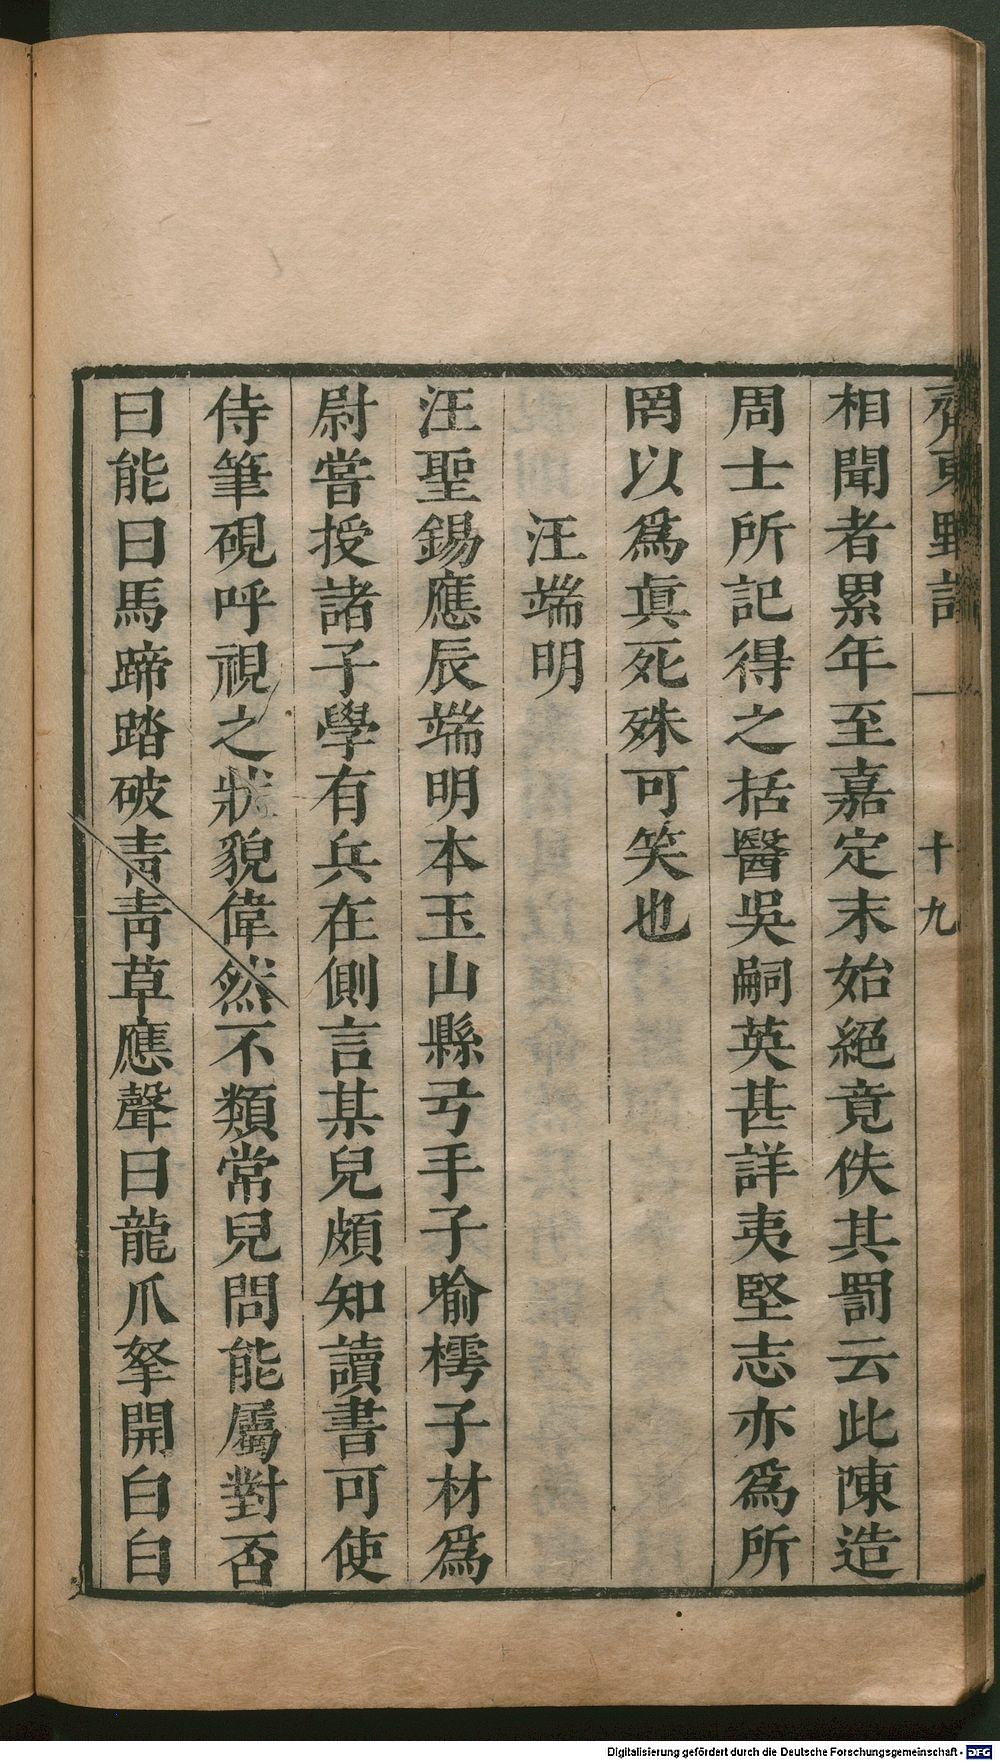 齊東野語
十九
相聞者累年至嘉定末始絕竟佚其罰云此陳造
周士所記得之括醫吳嗣英甚詳夷堅志亦為所
罔以為眞死殊可笑也
汪端明
汪聖錫應辰端明本玉山縣弓手子喻樗子材為
尉嘗授諸子學有兵在側言某兒頗知讀書可使
侍筆硯呼視之狀貌偉然不類常兒問能屬對否
曰能曰馬蹄踏破青青草應聲曰龍爪拏開白白
Digitalisierung gefördert durch die Deutsche Forschungsgemeinschaft - DFG